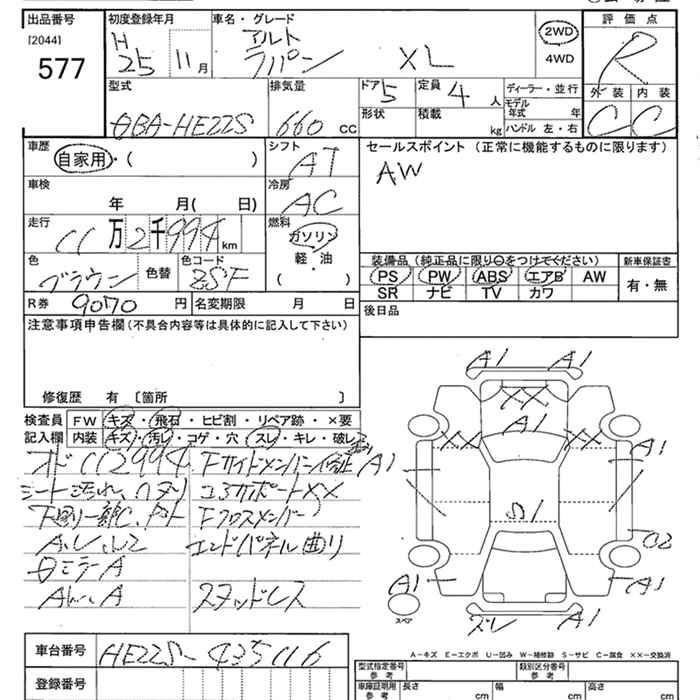 出品番号 初度登録年月 車名・グレード 評価点
[2044] H アルト 2WD R
577 25 11月 ラパン XL 4WD
外装 内装
型式 排気量 ドア 5 定員 4人 ディーラー・並行
モデル年式 年 C C
DBA-HE22S 660 CC 形状 積載 kg ハンドル 左・右
車歴 シフト セールスポイント (正常に機能するものに限ります)
自家用・( ) AT AW
車検 冷房
年 月( 日) AC
走行 燃料
11万2千994km ガソリン
軽・油
装備品 (純正品に限り○をつけてください) 新車保証書
色 色替 色コード
ブラウン ZSF ( )
PS PW ABS エアB AW 有・無
SR ナビ TV カワ
R券 9070円 名変期限 月 日 後日品
注意事項申告欄 (不具合内容等は具体的に記入して下さい)
修復歴 有 〔箇所 〕
検査員 FW キズ・飛石・ヒビ割・リペア跡・×要
記入欄 内装 キズ・汚れ・コゲ・穴・スレ・キレ・破レ
オド112994 Fサイドメンバー修正
シート汚れ、ヘタリ コアサポートXX
下廻り一部C、 Fクロスメンバー
エンドパネル曲り
ミラーA
スタッドレス
A1 A1
XX
XX A1 XX
A1 A1
S1
A1 A1
スペア
スレ A1
A-キズ E-エクボ U-凹み W-補修跡 S-サビ C-腐食 XX-交換済
車台番号 HE22S-435116
型式指定番号 参考 類別区分番号 参考
登録番号 車庫証明用 参考 長さ cm 幅 cm 高さ cm